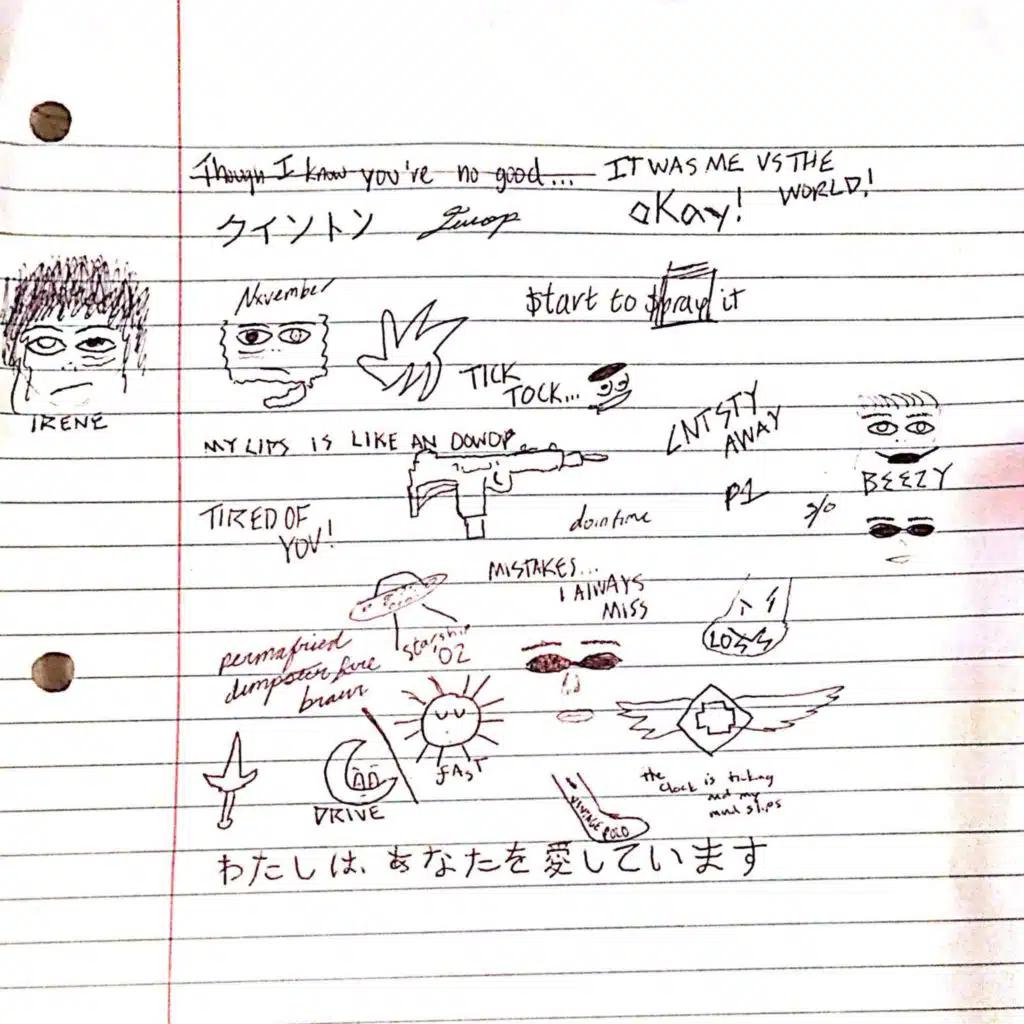 Though I know you're no good... IT WAS ME VS THE
WORLD!
クイントン
oKay!
November
$tart to $pray it
TICK
TOCK...
IRENE
MY LIPS IS LIKE AN
AWAY
BEEZY
P1
TIRED OF
YOU!
doin time
s/o
MISTAKES...
I ALWAYS
MISS
starship
'02
permafried
dumpster fire
brain
FAST
DRIVE
the
clock is
and my
slips
わたしは、あなたを愛しています